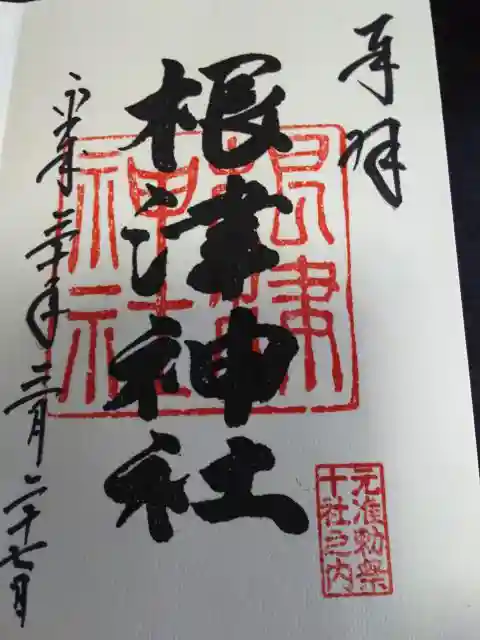 奉拝
根津神社
根津
神社
元准勅祭
十社之内
平成三十年三月二十七日